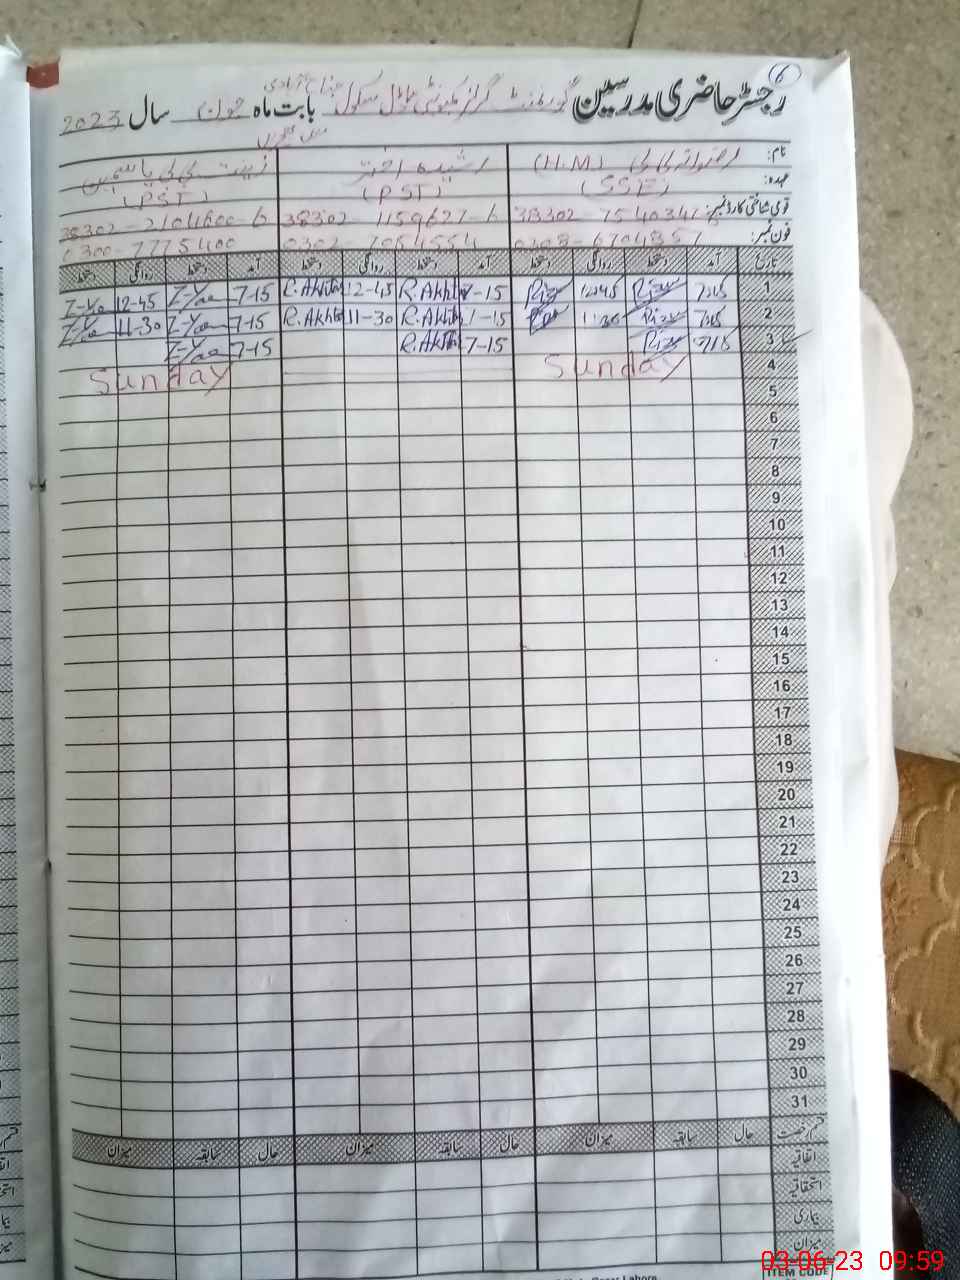 6
رجسٹر حاضری مدرسین گورنمنٹ گرلز کمیونٹی ماڈل سکول جناح آبادی بابت ماہ جون سال 2023
نام: رضوانہ بی بی (H.M) رشیدہ اختر زینت بی بی یاسمین
عہدہ: (SSE) (PST) (PST)
قومی شناختی کارڈ نمبر: 38302-7540347-8 38302-1159627-6 38302-2104600-6
فون نمبر: 0308-6704857 0302-7054554 0300-7775400
تاریخ آمد دستخط روانگی دستخط آمد دستخط روانگی دستخط آمد دستخط روانگی دستخط
1 7:15 Rizw 12:45 Rizw 7-15 R.Akhtar 12-45 R.Akhtar 7-15 12-45
2 7:15 Rizw 11:30 7-15 R.Akhtar 11-30 R.Akhtar 7-15 11-30
3 7:15 Rizw 7-15 R.Akhtar 7-15
4 Sunday Sunday
5
6
7
8
9
10
11
12
13
14
15
16
17
18
19
20
21
22
23
24
25
26
27
28
29
30
31
قسم رخصت حال سابقہ میزان حال سابقہ میزان حال سابقہ میزان
اتفاقیہ
استحقاقیہ
بیماری
میزان
ITEM CODE
03-06-23 09:59